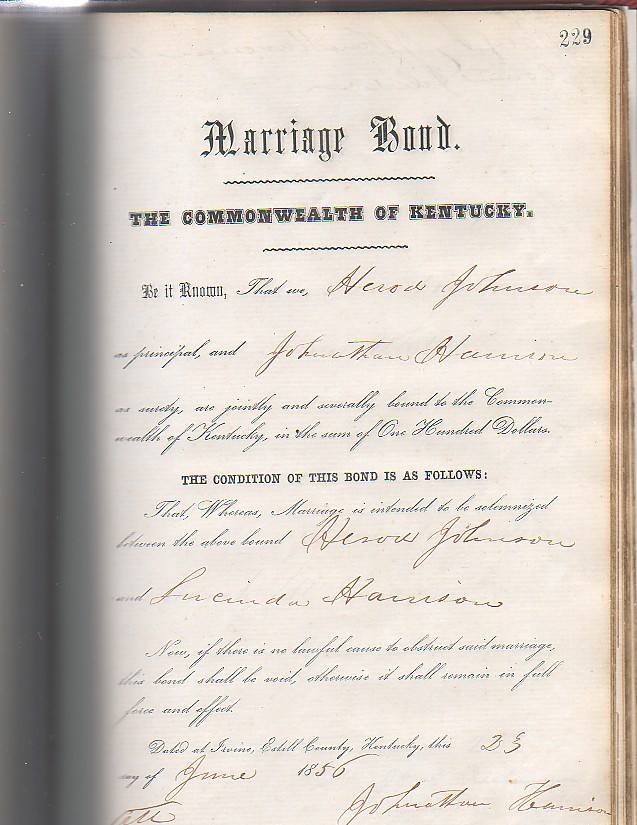 229
Marriage Bond.
THE COMMONWEALTH OF KENTUCKY.
Be it Known, That we, Herod Johnson
as principal, and Johnathan Harrison
as surety, are jointly and severally bound to the Common-
wealth of Kentucky, in the sum of One Hundred Dollars.
THE CONDITION OF THIS BOND IS AS FOLLOWS:
That, Whereas, Marriage is intended to be solemnized
between the above bound Herod Johnson
and Lucinda Harrison
Now, if there is no lawful cause to obstruct said marriage,
this bond shall be void, otherwise it shall remain in full
force and effect.
Dated at Irvine, Estill County, Kentucky, this 23
day of June 1856
Johnathan Harrison